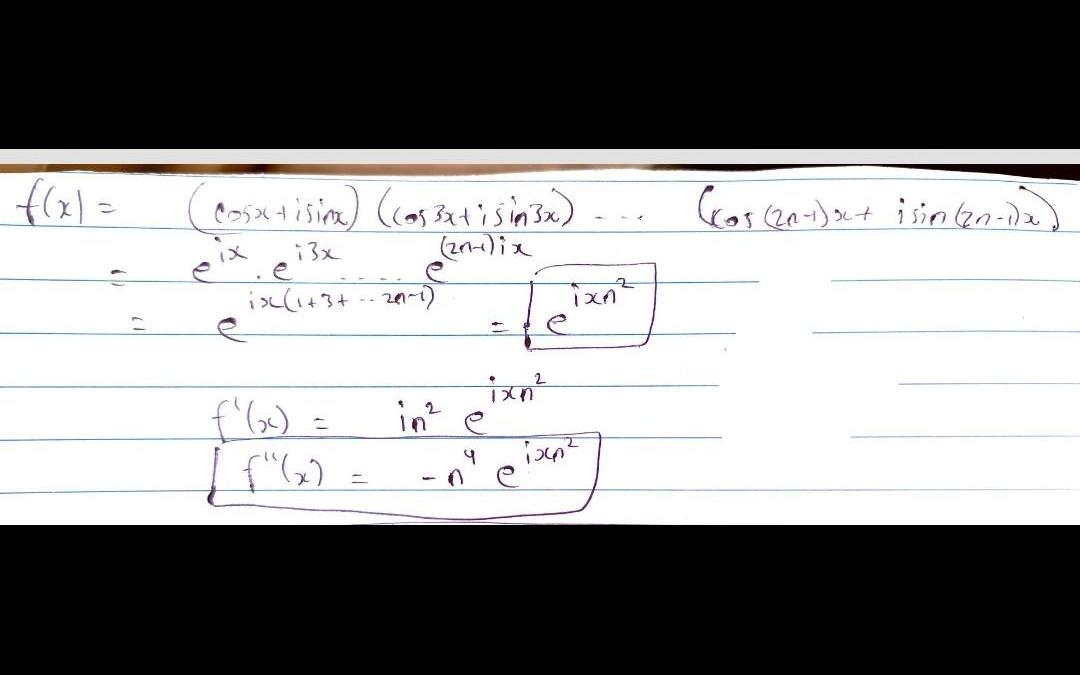 f(x) = (cosx+isinx) (cos3x+isin3x) .... (cos(2n-1)x+ isin(2n-1)x)
= e^{ix} . e^{i3x} ..... e^{(2n-1)ix}
= e^{ix(1+3+ ..2n-1)} = e^{ixn^2}
f'(x) = in^2 e^{ixn^2}
f''(x) = -n^4 e^{ixn^2}